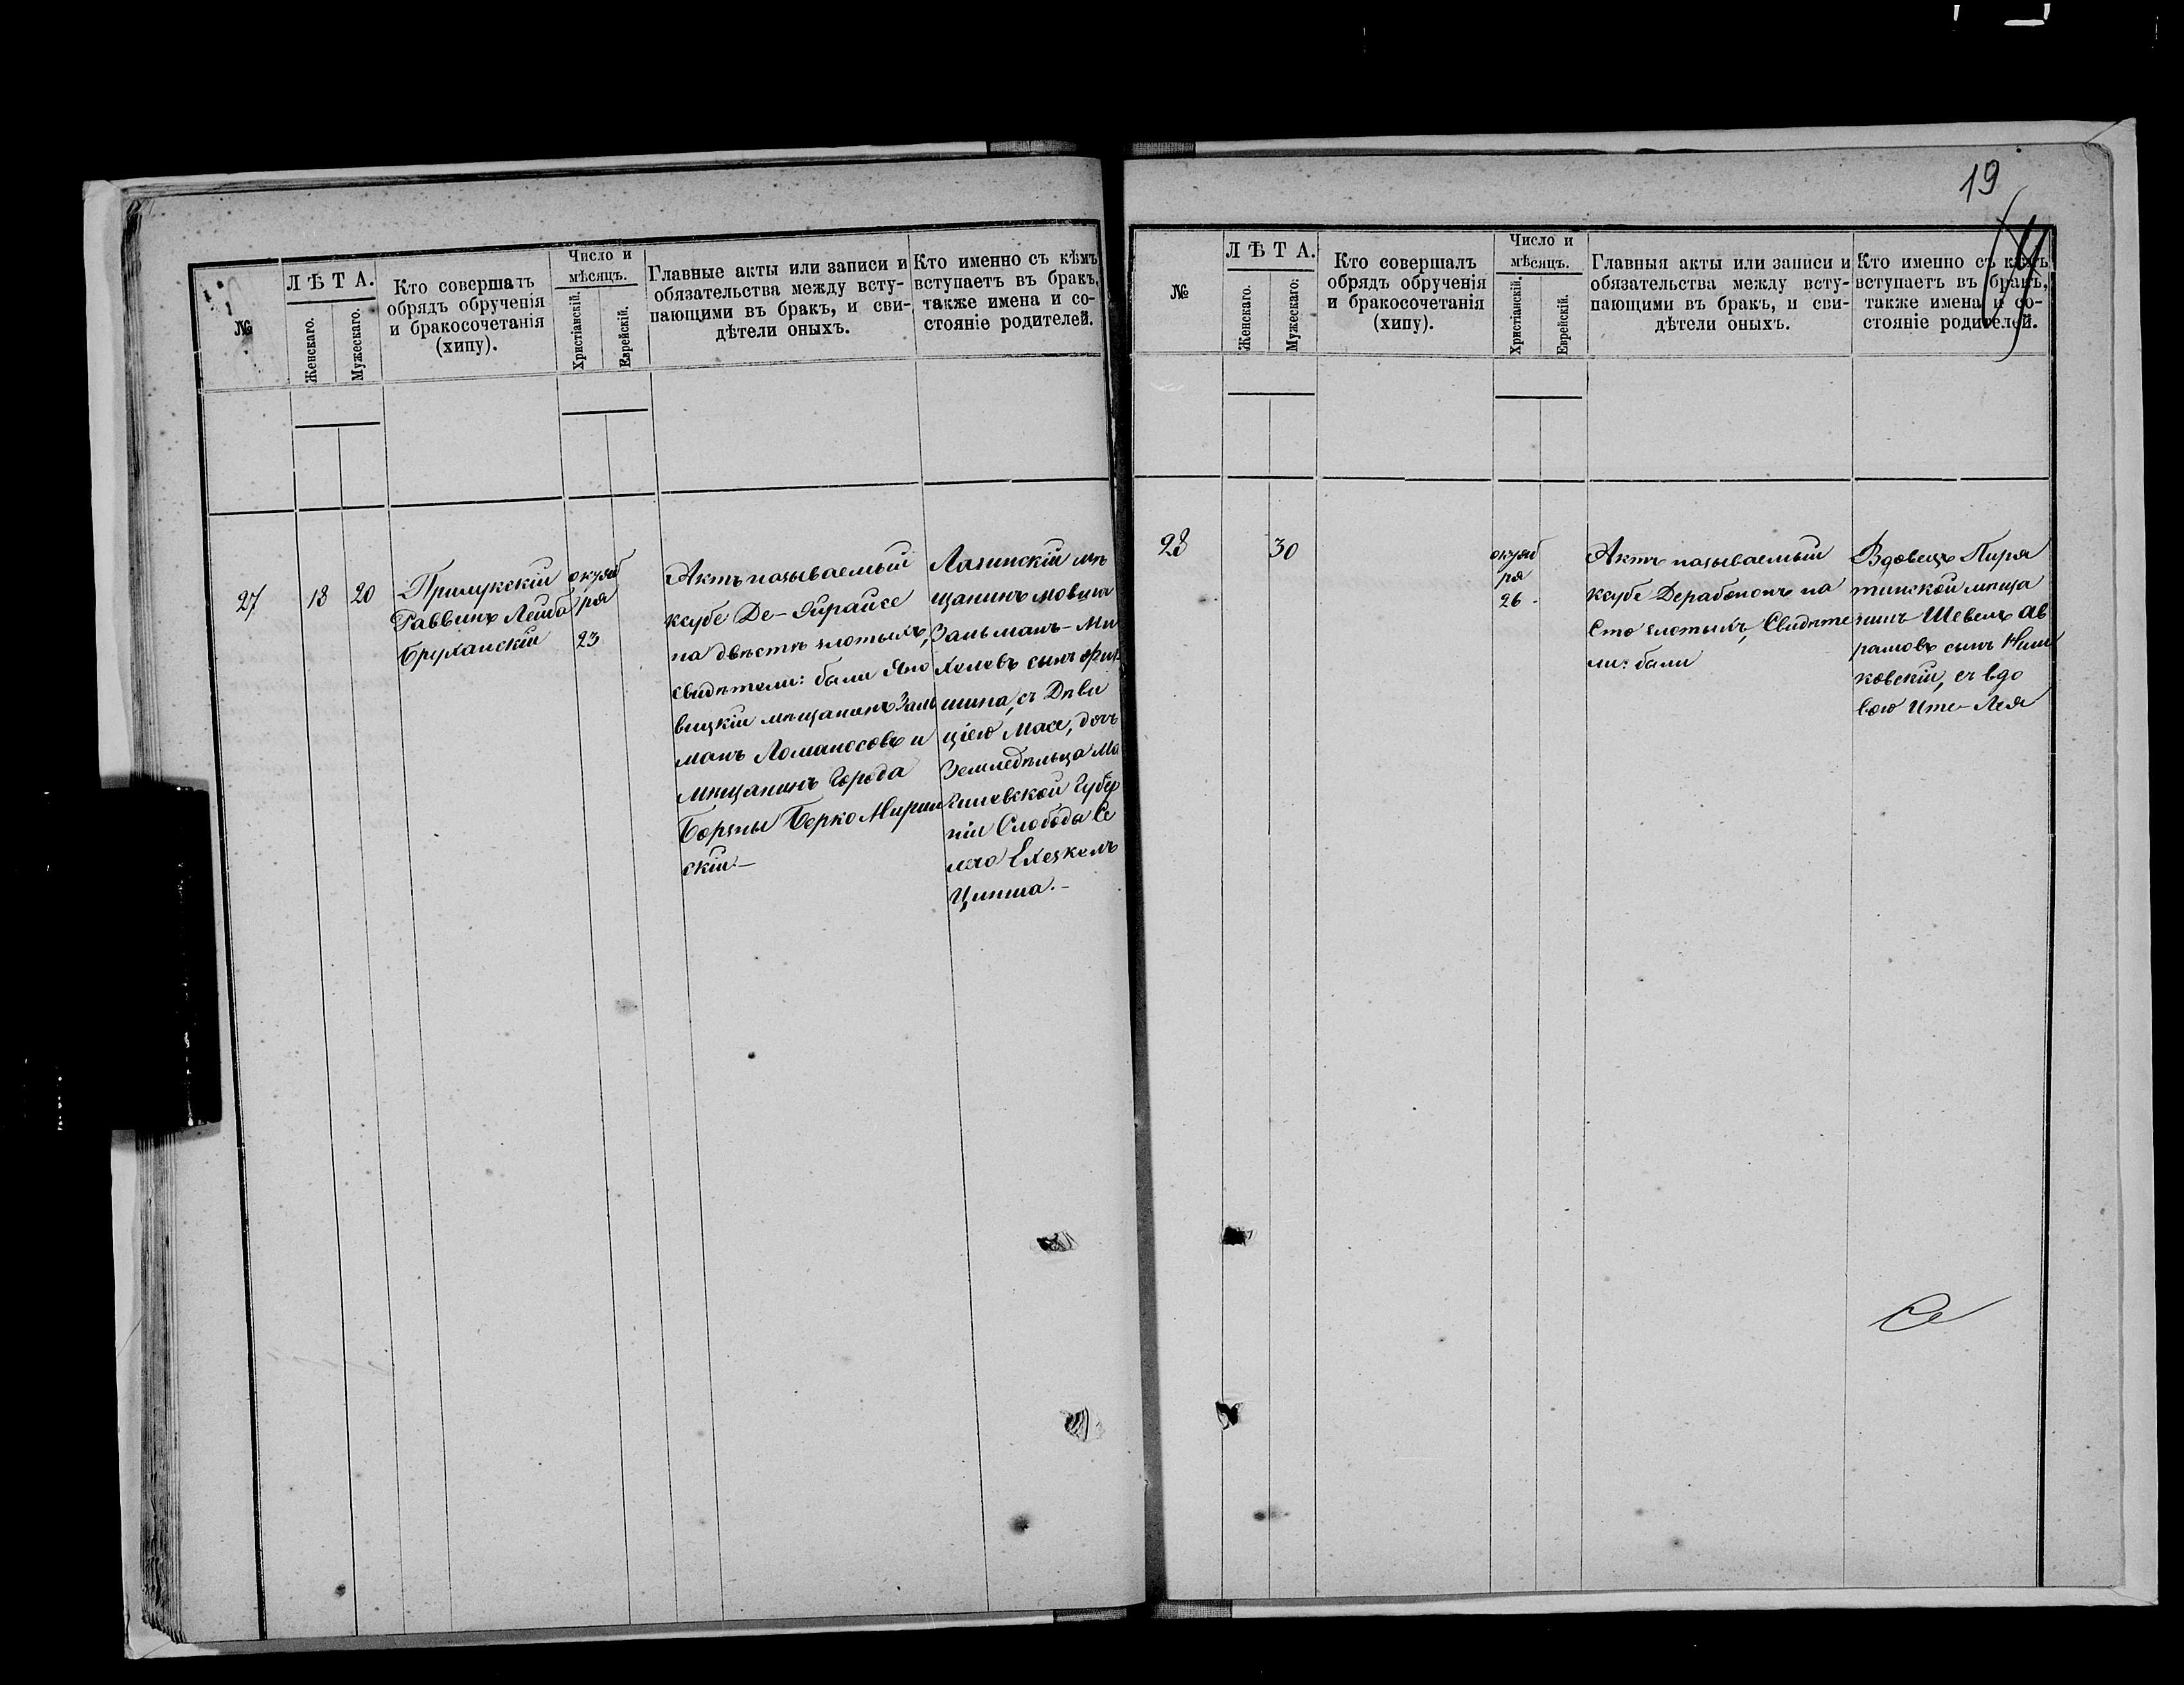 19
№
ЛѢТА.
Женскаго.
Мужескаго.
Кто совершалъ
обрядъ обрученія
и бракосочетанія
(хипу).
Число и
мѣсяцъ.
Христіанскій.
Еврейскій.
Главные акты или записи и
обязательства между всту-
пающими въ бракъ, и сви-
дѣтели оныхъ.
Кто именно съ кѣмъ
вступаетъ въ бракъ,
также имена и со-
стояніе родителей.
27
18
20
Прилукскій
Раввинъ Лейба
Бруханскій
октяб
ря
23
Актъ называемый
ксубе Де-Яйраисе
на двѣстѣ злотыхъ,
свидѣтели: были Яно
вицкій мѣщанинъ Заль
манъ Ломаносовъ и
мѣщанинъ Города
Борзны Берко Мирин
скій.-
Лазинскій мѣ
щанинъ Мовша
Зальманъ-Ми
Хелевъ сынъ
шина, съ Дѣви
цією Масе, дочъ
Земледѣльца Мо
гилевской Губер
ніи Слобода Се
лечо Ехезкелъ
Ципша.-
№
ЛѢТА.
Женскаго.
Мужескаго.
Кто совершалъ
обрядъ обрученія
и бракосочетанія
(хипу).
Число и
мѣсяцъ.
Христіанскій.
Еврейскій.
Главныя акты или записи и
обязательства между всту-
пающими въ бракъ, и сви-
дѣтели оныхъ.
Кто именно съ кѣмъ
вступаетъ въ бракъ,
также имена и со-
стояніе родителей.
28
30
октяб
ря
26.
Актъ называемый
ксубе Дерабононъ на
Сто злотыхъ, Свидѣте
ли: были
Вдовецъ Пиря
тинской мѣща
нинъ Шевелъ Ав
рамовъ сынъ
ковскій, съ вдо
вою Ите-Лея